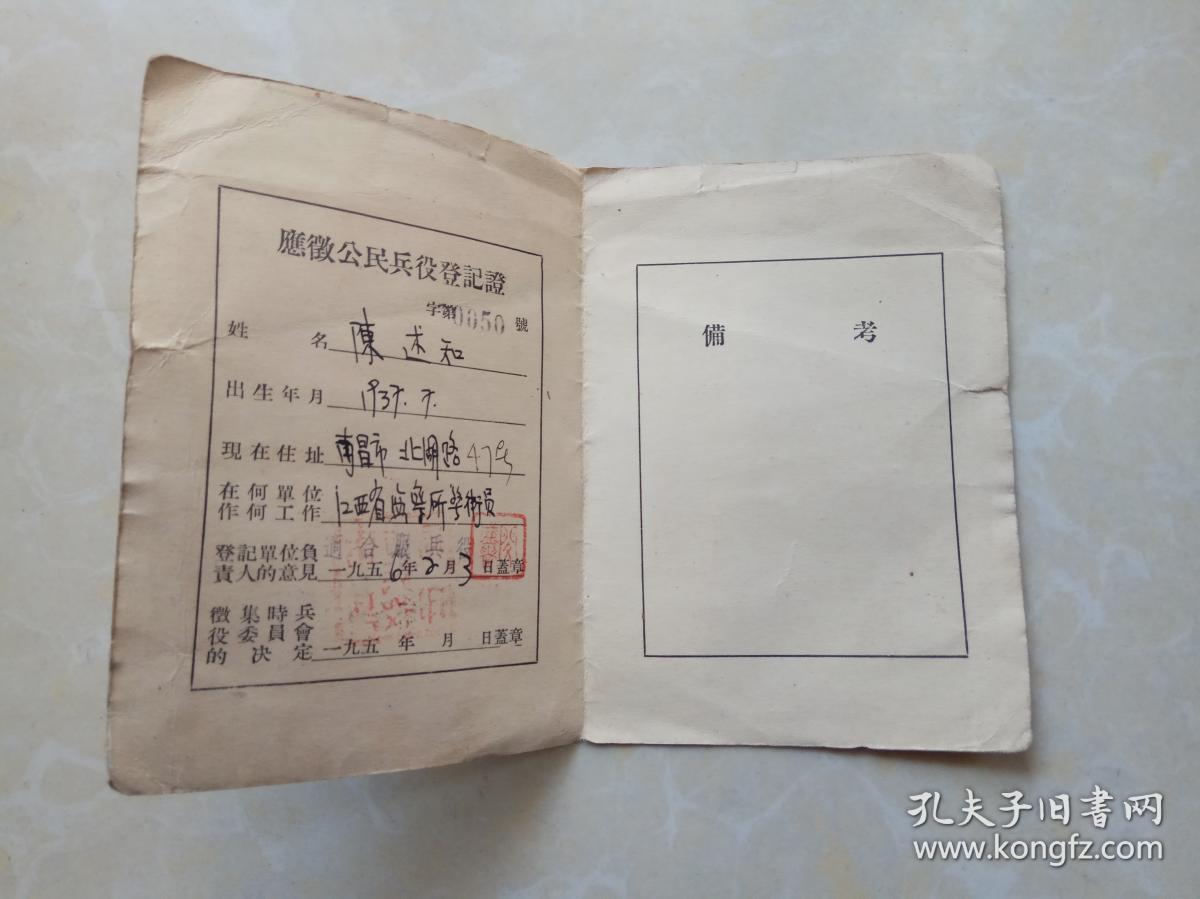 應徵公民兵役登記證
字第0050號
姓名 陳述和
出生年月 1937.7.
現在住址 南昌市 北湖路 47号
在何單位
作何工作 江西省 所 員
登記單位負 適合服兵役
責人的意見 一九五6年2月3日蓋章
徵集時兵
役委員會
的決定 一九五 年 月 日蓋章
備考
孔夫子旧书网
www.kongfz.com